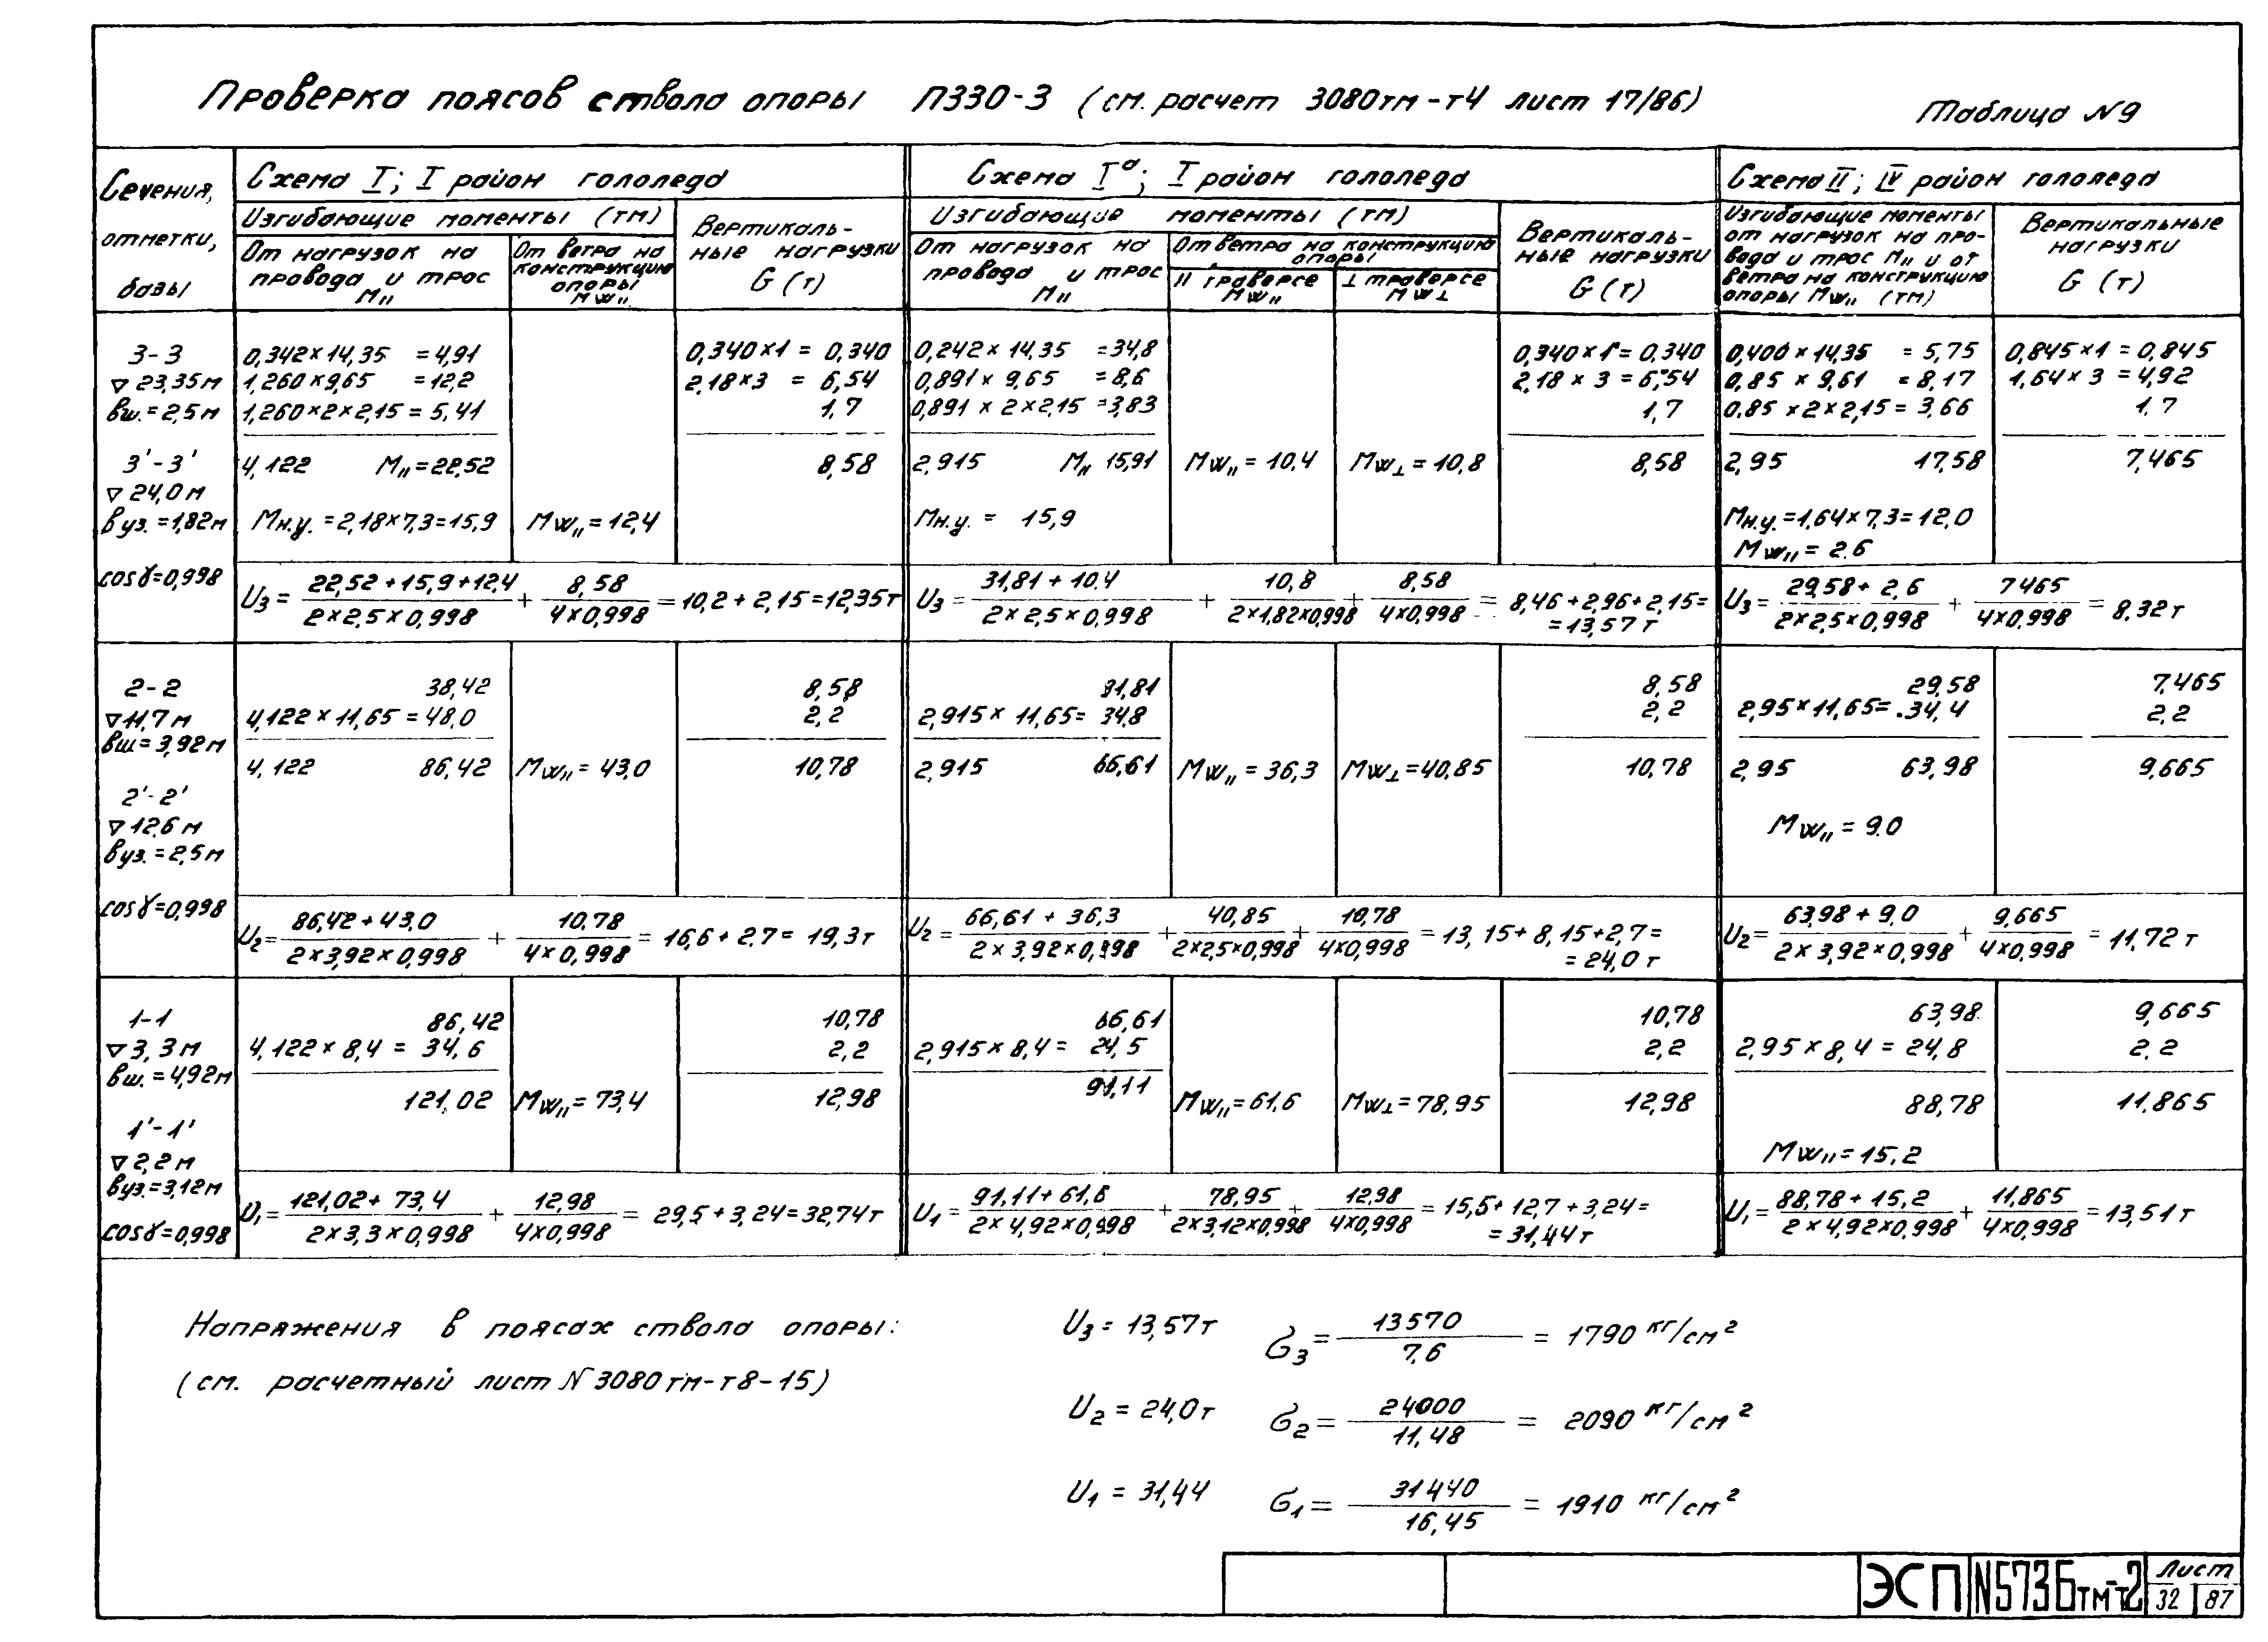 Проверка поясов ствола опоры П330-3 (см. расчет 3080тм-т4 лист 17/86)
Таблица №9
Сечения,
отметки,
базы
Схема I; I район гололеда
Изгибающие моменты (тм)
От нагрузок на
провода и трос
M||
От ветра на
конструкцию
опоры
Mw||
Вертикаль-
ные нагрузки
G (т)
Схема Iа; I район гололеда
Изгибающие моменты (тм)
От нагрузок на
провода и трос
M||
От ветра на конструкцию
опоры
|| траверсе
Mw||
⊥ траверсе
Mw⊥
Вертикаль-
ные нагрузки
G (т)
Схема II; IV район гололеда
Изгибающие моменты
от нагрузок на про-
вода и трос M|| и от
ветра на конструкцию
опоры Mw|| (тм)
Вертикальные
нагрузки
G (т)
3-3
▽23,35м
вш.=2,5м
3'-3'
▽24,0м
вуз.=1,82м
cosγ=0,998
0,342×14,35 =4,91
1,260×9,65 =12,2
1,260×2×2,15=5,41
4,122 M||=22,52
Mн.у.=2,18×7,3=15,9
Mw||=12,4
0,340×1= 0,340
2,18×3 = 6,54
1,7
8,58
0,242×14,35 =34,8
0,891×9,65 =8,6
0,891×2×2,15=3,83
2,915 M|| 15,91
Mн.у. = 15,9
Mw||=10,4
Mw⊥=10,8
0,340×1=0,340
2,18×3=6,54
1,7
8,58
0,400×14,35 =5,75
0,85×9,61 =8,17
0.85×2×2,15=3,66
2,95 17,58
Mн.у.=1,64×7,3=12,0
Mw||=2.6
0,845×1=0,845
1,64×3=4,92
1,7
7,465
U3= (22,52+15,9+12,4)/(2×2,5×0,998) + 8,58/(4×0,998) =10,2+2,15=12,35т
U3= (31,81+10,4)/(2×2,5×0,998) + 10,8/(2×1,82×0,998) + 8,58/(4×0,998) = 8,46+2,96+2,15=
=13,57т
U3= (29,58+2,6)/(2×2,5×0,998) + 7465/(4×0,998) = 8,32т
2-2
▽11,7м
вш=3,92м
2'-2'
▽12,6м
вуз.=2,5м
cosγ=0,998
38,42
4,122×11,65=48,0
4,122 86,42
Mw||=43,0
8,58
2,2
10,78
31,81
2,915×11,65= 34,8
2,915 66,61
Mw||=36,3
Mw⊥=40,85
8,58
2,2
10,78
29,58
2,95×11,65=34,4
2,95 63,98
Mw||=9.0
7,465
2,2
9,665
U2= (86,42+43,0)/(2×3,92×0,998) + 10,78/(4×0,998) = 16,6+2,7= 19,3т
U2= (66,61+36,3)/(2×3,92×0,998) + 40,85/(2×2,5×0,998) + 10,78/(4×0,998) =13,15+8,15+2,7=
=24,0т
U2= (63,98+9,0)/(2×3,92×0,998) + 9,665/(4×0,998) =11,72т
1-1
▽3,3м
вш.=4,92м
1'-1'
▽2,2м
вуз.=3,12м
cosγ=0,998
86,42
4,122×8,4= 34,6
121,02
Mw||=73,4
10,78
2,2
12,98
66,61
2,915×8,4= 24,5
91,11
Mw||=61,6
Mw⊥=78,95
10,78
2,2
12,98
63,98
2,95×8,4=24,8
88,78
Mw||=15,2
9,665
2.2
11.865
U1= (121,02+73,4)/(2×3,3×0,998) + 12,98/(4×0,998) = 29,5+3,24=32,74т
U1= (91,11+61,6)/(2×4,92×0,998) + 78,95/(2×3,12×0,998) + 12,98/(4×0,998) =15,5+12,7+3,24=
=31,44т
U1= (88,78+15,2)/(2×4,92×0,998) + 11,865/(4×0,998) =13,51т
Напряжения в поясах ствола опоры:
(см. расчетный лист №3080тм-т8-15)
U3=13,57т σ3= 13570/7.6 = 1790 кг/см²
U2=24,0т σ2= 24000/11,48 = 2090 кг/см²
U1=31,44 σ1= 31440/16,45 = 1910 кг/см²
ЭСП N5736тм-т2 Лист
32 87